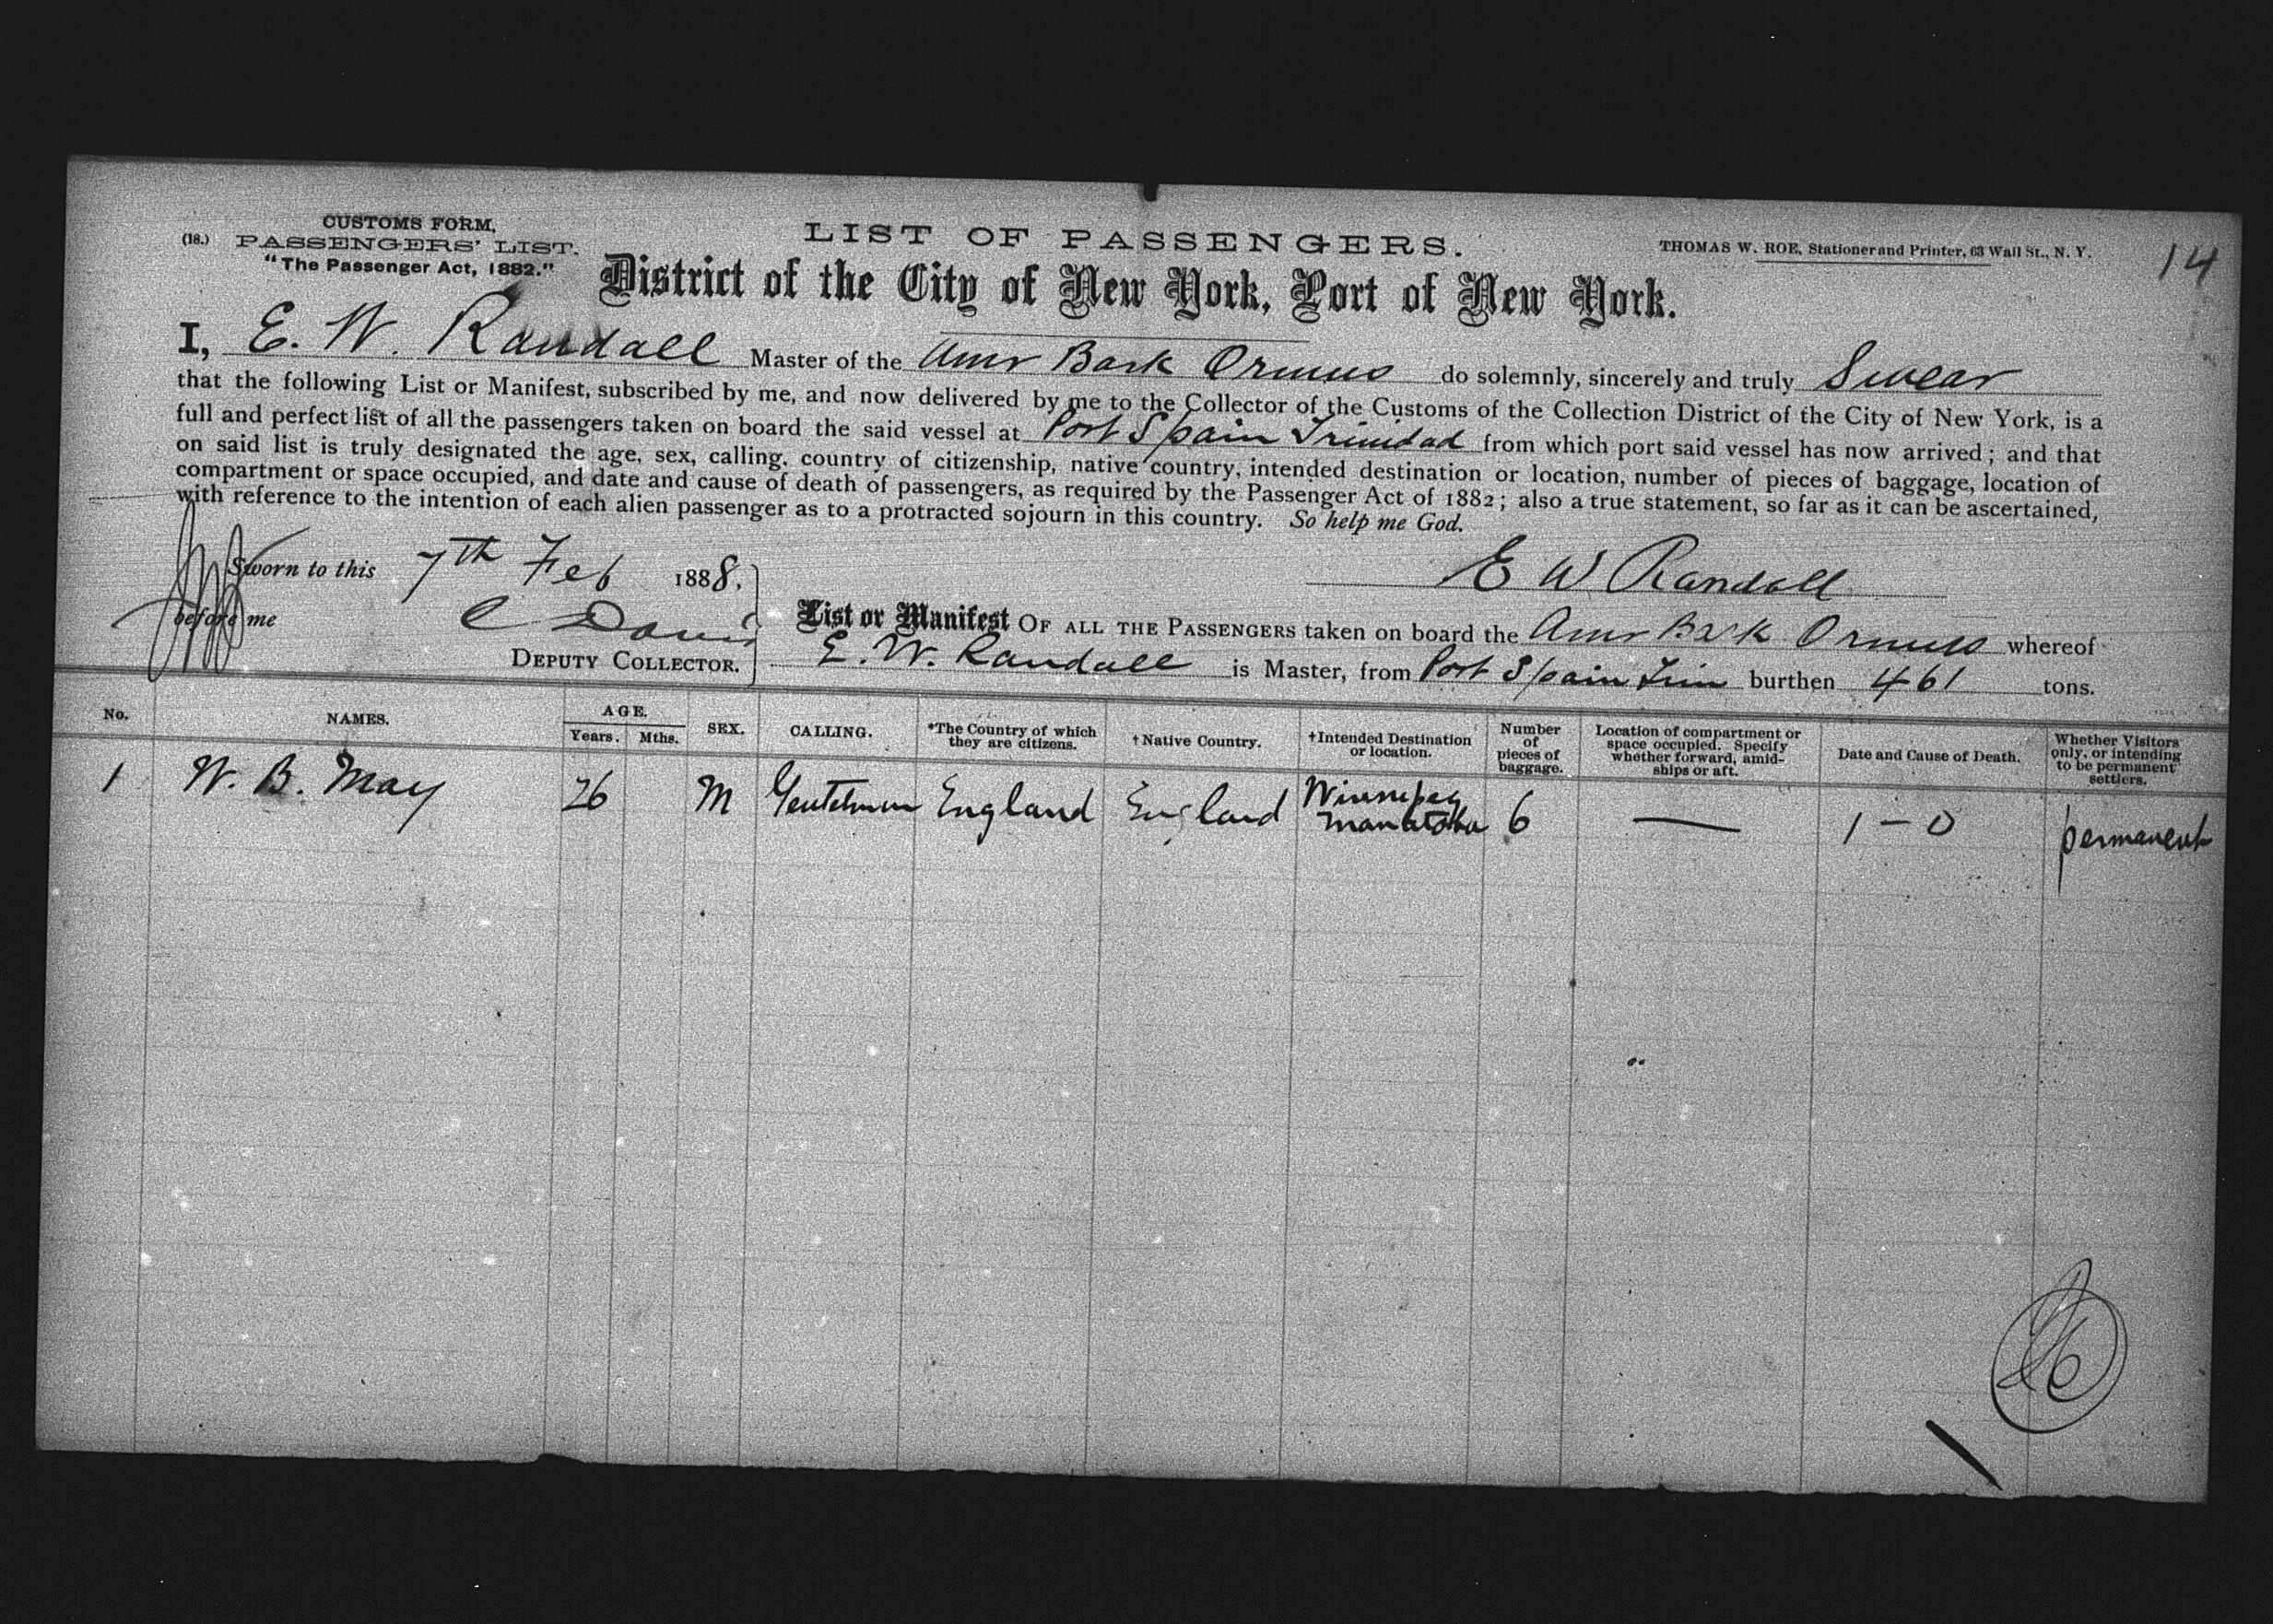 CUSTOMS FORM,
(18.) PASSENGERS' LIST.
"The Passenger Act, 1882."
LIST OF PASSENGERS.
THOMAS W. ROE, Stationer and Printer, 63 Wall St., N. Y.
14
District of the City of New York, Port of New York.
I, E. W. Randall Master of the Amr Bark Ormus do solemnly, sincerely and truly Swear
that the following List or Manifest, subscribed by me, and now delivered by me to the Collector of the Customs of the Collection District of the City of New York, is a
full and perfect list of all the passengers taken on board the said vessel at Port Spain Trinidad from which port said vessel has now arrived; and that
on said list is truly designated the age, sex, calling, country of citizenship, native country, intended destination or location, number of pieces of baggage, location of
compartment or space occupied, and date and cause of death of passengers, as required by the Passenger Act of 1882; also a true statement, so far as it can be ascertained,
with reference to the intention of each alien passenger as to a protracted sojourn in this country. So help me God.
Sworn to this 7th Feb 1888,
E W Randall
before me C Davis
DEPUTY COLLECTOR.
List or Manifest OF ALL THE PASSENGERS taken on board the Amr Bark Ormus whereof
E. W. Randall is Master, from Port Spain Trin burthen 461 tons.
No. NAMES. AGE. Years. Mths. SEX. CALLING. *The Country of which they are citizens. †Native Country. †Intended Destination or location. Number of pieces of baggage. Location of compartment or space occupied. Specify whether forward, amidships or aft. Date and Cause of Death. Whether Visitors only, or intending to be permanent settlers.
1 W. B. May 26 M Gentelman England England Winnipeg Manatoba 6 — 1 – 0 permanent